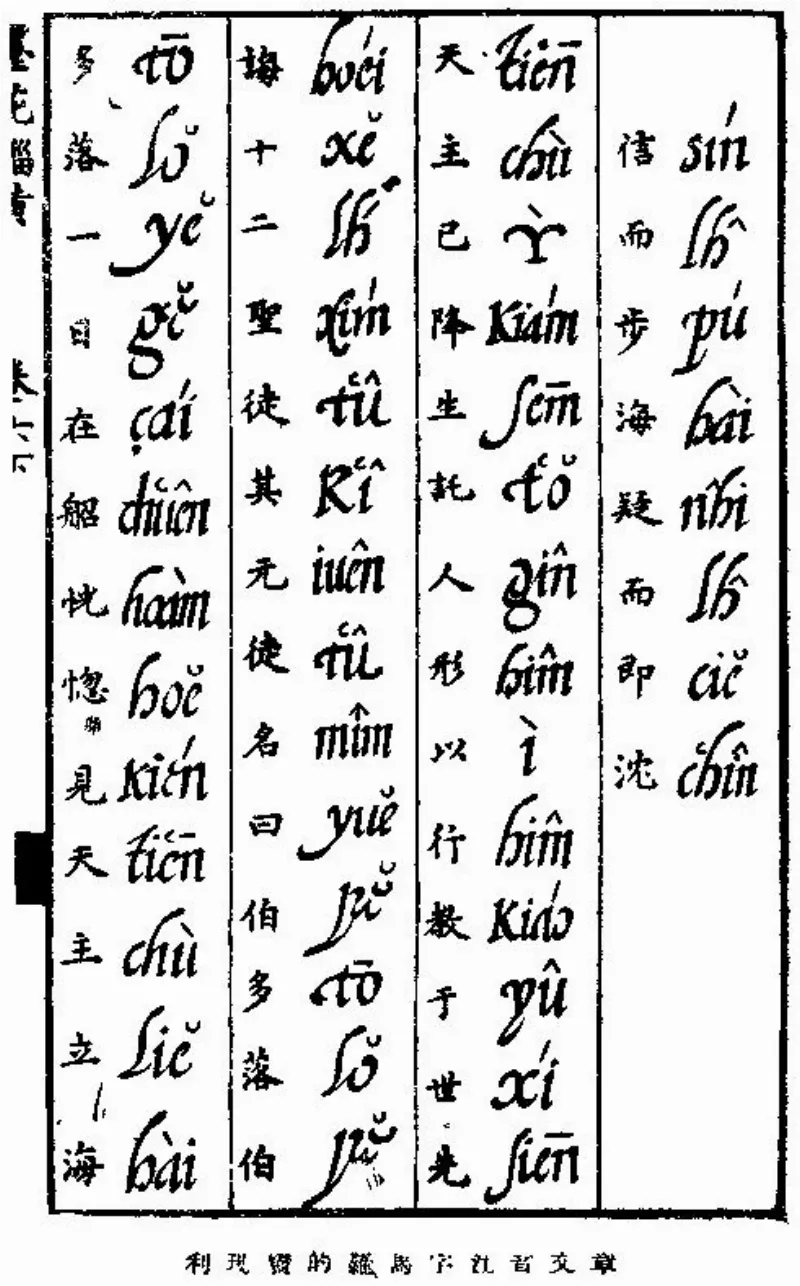 sín lĥ pú hài nĥi lĥ ciĕ chîn
信而步海疑而即沈
tiēn chù ỳ kiám sēm tŏ gîn hîm ì hîm kiáo yû xí siēn
天主已降生託人形以行教于世先
hoéi xĕ lh́ xím tû kî iuên tû mîm yuĕ pĕ tō lŏ pĕ
誨十二聖徒其元徒名曰伯多落伯
tō lŏ yĕ gĕ çaí chuên hoàm hoĕ kién tiēn chù liĕ hài
多落一日在船恍惚見天主立海
利瑪竇的羅馬字注音文章